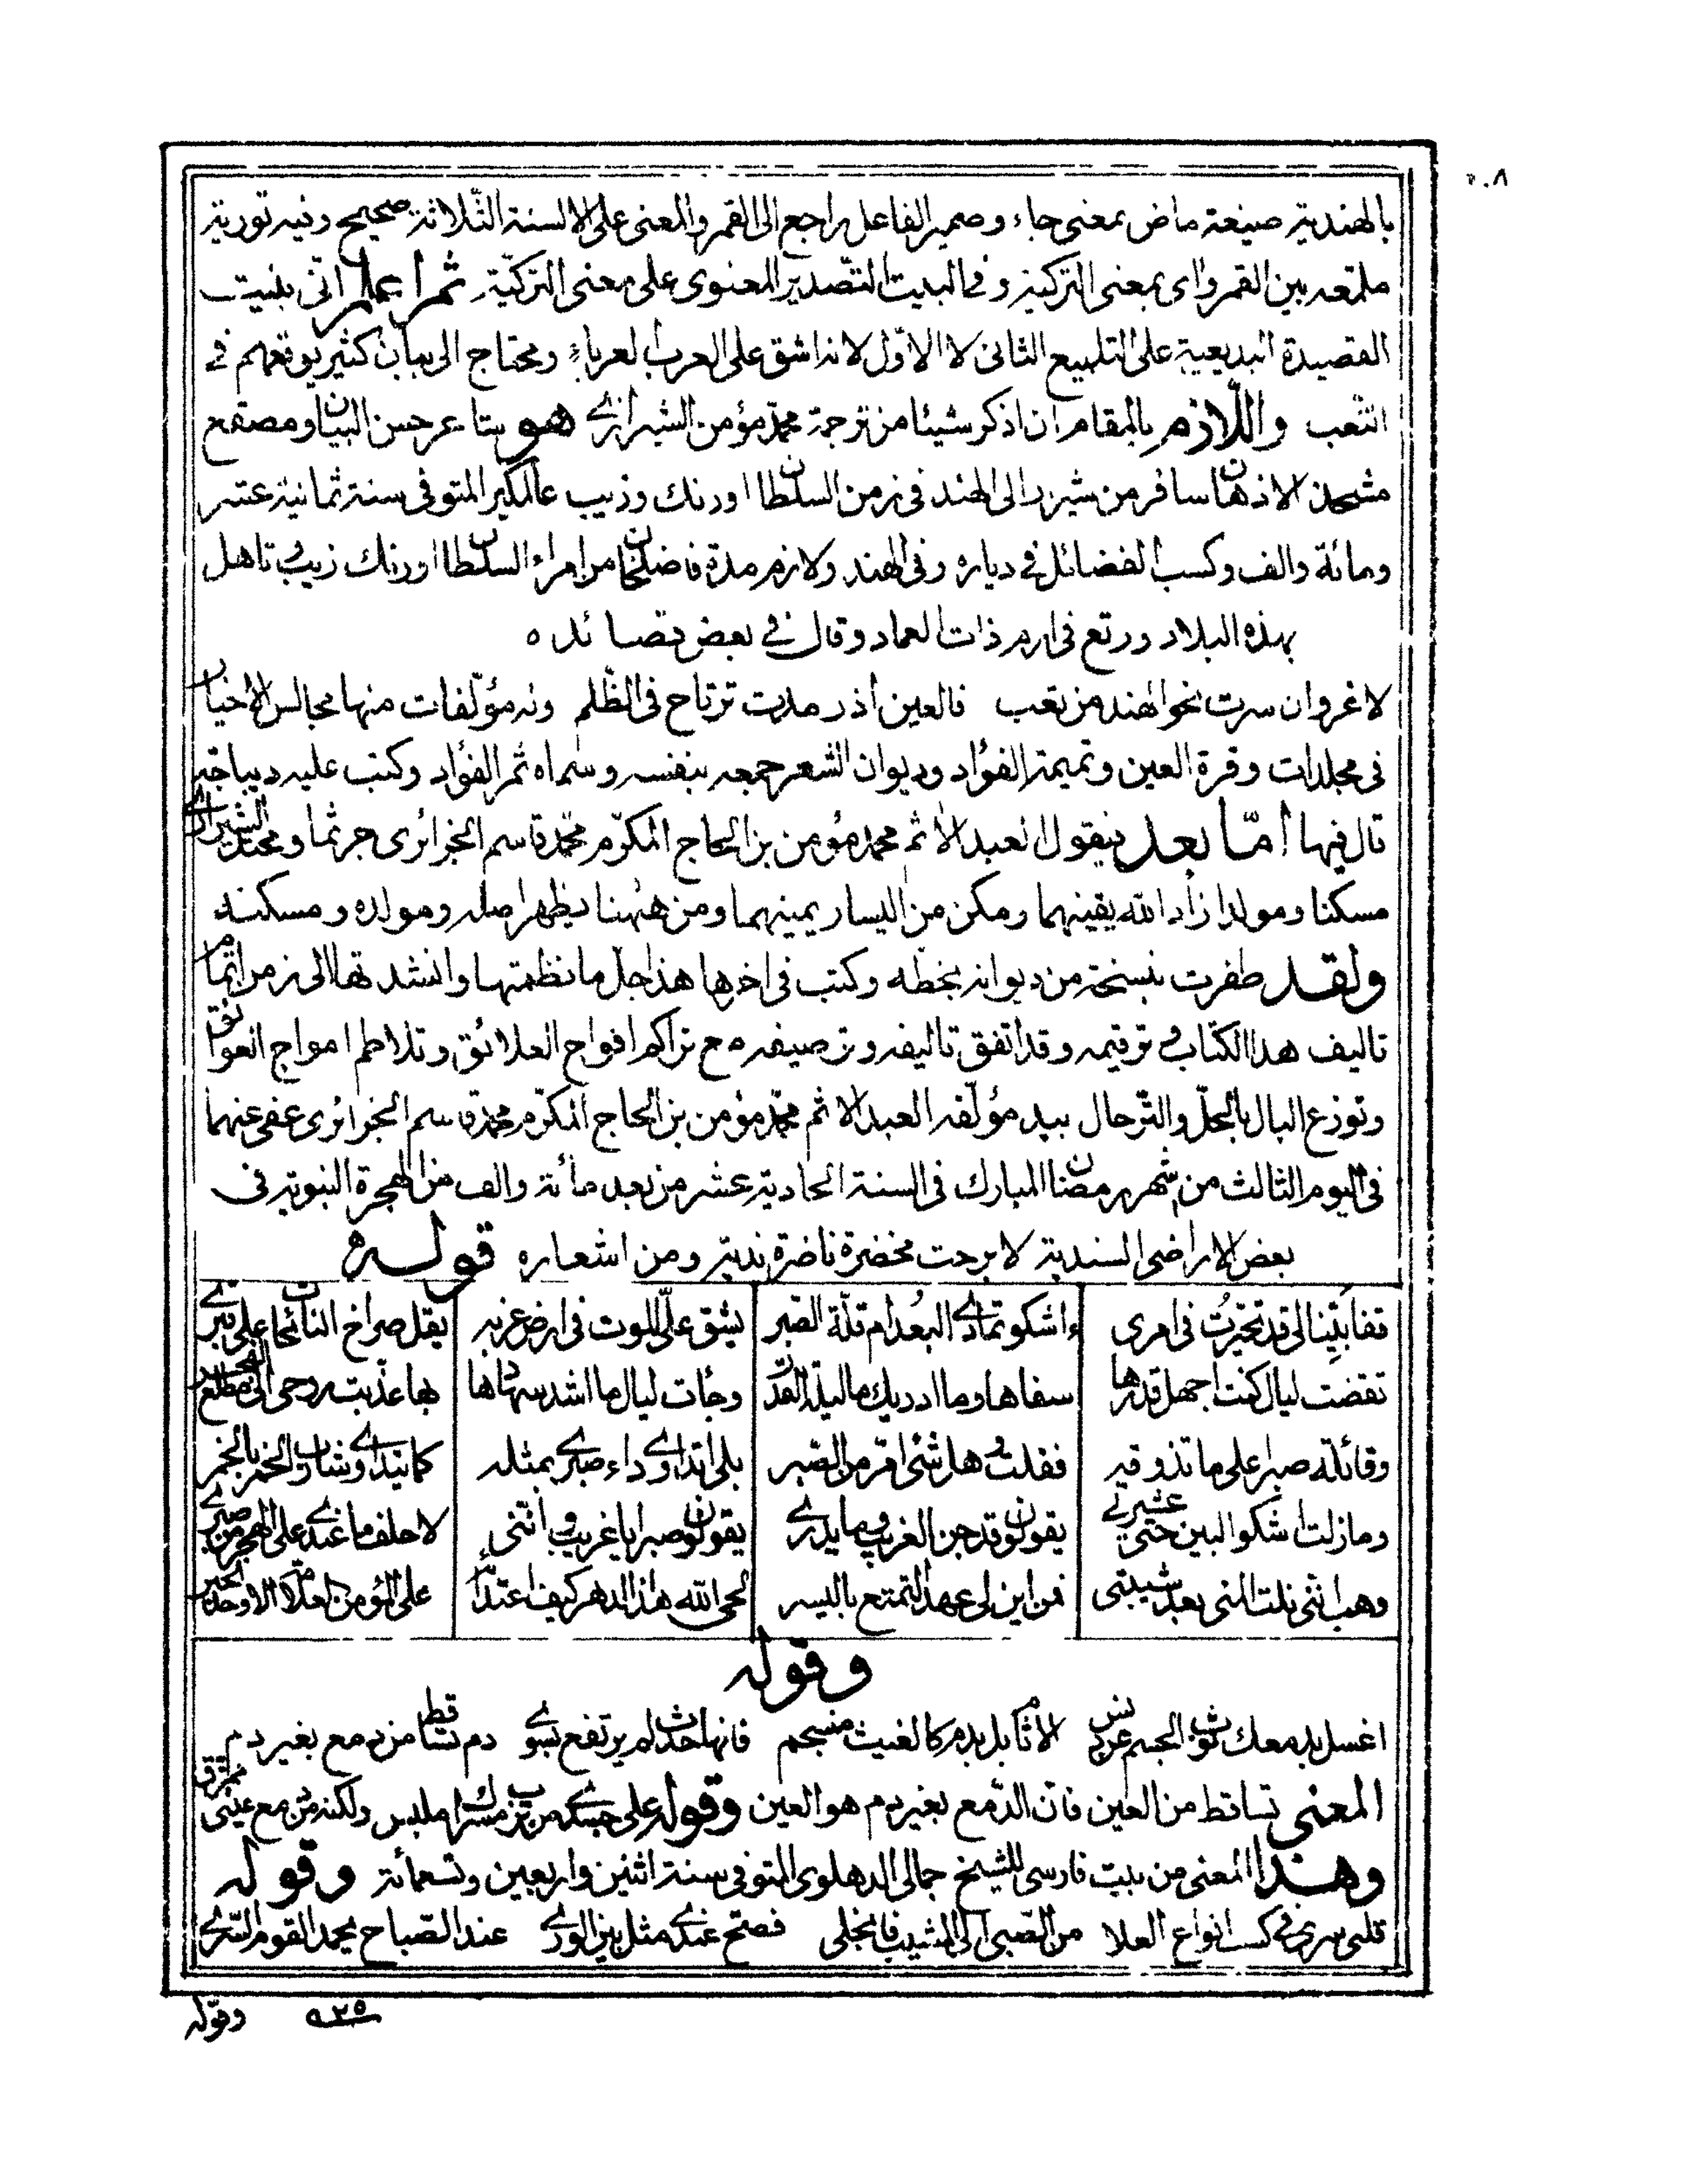 ٢٠٨
بالهندية صيغة ماض بمعنى جاء وضمير الفاعل راجع الى القمر والمعنى على الالسنة الثلاثة صحيح وفيه تورية
ملمعه بين القمر واى بمعنى التركية وفى البيت التصدير المعنوى على معنى التركية ثم اعلم انى بنيت
القصيدة البديعية على التلميع الثانى لا الاول لانه اشق على العرب العرباء ومحتاج الى بيان كثير يوقعهم فى
التعب واللازم بالمقام ان اذكر شيئا من ترجمة محمد مؤمن الشيرازى هو عرحسن البيان ومصقع
مشحذ الاذهان سافر من شيراز الى الهند فى زمن السلطان اورنك وزيب عالمكير المتوفى سنة ثمانية عشر
ومائة والف وكسب الفضائل فى دياره وفى الهند ولازم مدة فاضلخان من امراء السلطان اورنك زيب تاهل
بهذه البلاد ورتع فى ارم ذات العماد وقال فى بعض قصائده
لاغرو ان سرت نحو الهند من تعب فالعين اذ رمدت ترتاح فى الظلم وله مؤلفات منها مجالس الاخيار
فى مجلدات وقرة العين وتميمة الفؤاد وديوان الشعر جمعه بنفسه وسماه ثمر الفؤاد وكتب عليه ديباجة
قال فيها اما بعد فيقول العبد الاثم محمد مؤمن بن الحاج المكرم محمد قاسم الجزائرى جرثما ومحتدا الشيرازى
مسكنا ومولدا زاد الله يقينهما ومكن من اليسار يمينهما ومن ههنا يظهر اصله ومولده ومسكنه
ولقد ظفرت بنسخة من ديوانه بخطه وكتب فى اخرها هذا جل ما نظمتها وانشدتها الى زمن اتمام
تاليف هذا الكتاب وترقيمه وقد اتفق تاليفه وترصيفه مع تراكم افواج العلائق وتلاطم امواج العوائق
وتوزع البال بالحل والترحال بيد مؤلفه العبد الاثم محمد مؤمن بن الحاج المكرم محمد قاسم الجزائرى عفى عنهما
فى اليوم الثالث من شهر رمضان المبارك فى السنة الحادية عشر من بعد مائة والف من الهجرة النبوية فى
بعض الاراضى السندية لا برحت مخضرة ناضرة ندية ومن اشعاره قوله
قفا بثينا لى قد تحيرت فى امرى ءاشكو تمادى البعد ام قلة الصبر يشق على الموت فى ارض غربة يقل صراخ النائحات على قبرى
تقضت ليال كنت اجهل قدرها سفاها وما ادريك ما ليلة القدر وجأت ليال ما اشد سهادها بها عذبت روحى الى مطلع الفجر
وقائلة صبرا على ما تذوقه فقلت وهل شئ امر من الصبر بلى اتداوى داء صبرى بمثله كما يتداوى شارب الخمر بالخمر
ومازلت اشكو البين حتى عشيرتى يقولون قد جن الغريب وما يدرى يقولون صبرا يا غريب واننى لاحلف ما عندى على الهجر من صبرى
وهب اننى نلت المنى بعد شيبتى فمن اين لى عهد التمتع باليسر لحى الله هذا الدهر كيف اعتدى على المؤمن العلامة الاوحد الحبر
وقوله
اغسل بدمعك ثوب الجسم عن دنس الاثام بل بدم كالغيث منسجم فانها حدث لم يرتفع بسوى دم تساقط من دمع بغير دم
المعنى تساقط من العين فان الدمع بغير دم هو العين وقوله على جسدى من ملبس ولكنه من دمع عينى ممزق
وهذا المعنى من بيت فارسى للشيخ جمالى الدهلوى المتوفى سنة اثنين واربعين وتسعمائة وقوله
قلبى سرى فى كسب انواع العلا من الصبى الى المشيب فانجلى فصح عندى مثل بين الورى عند الصباح يحمد القوم السرى
٩٣٥
وقوله